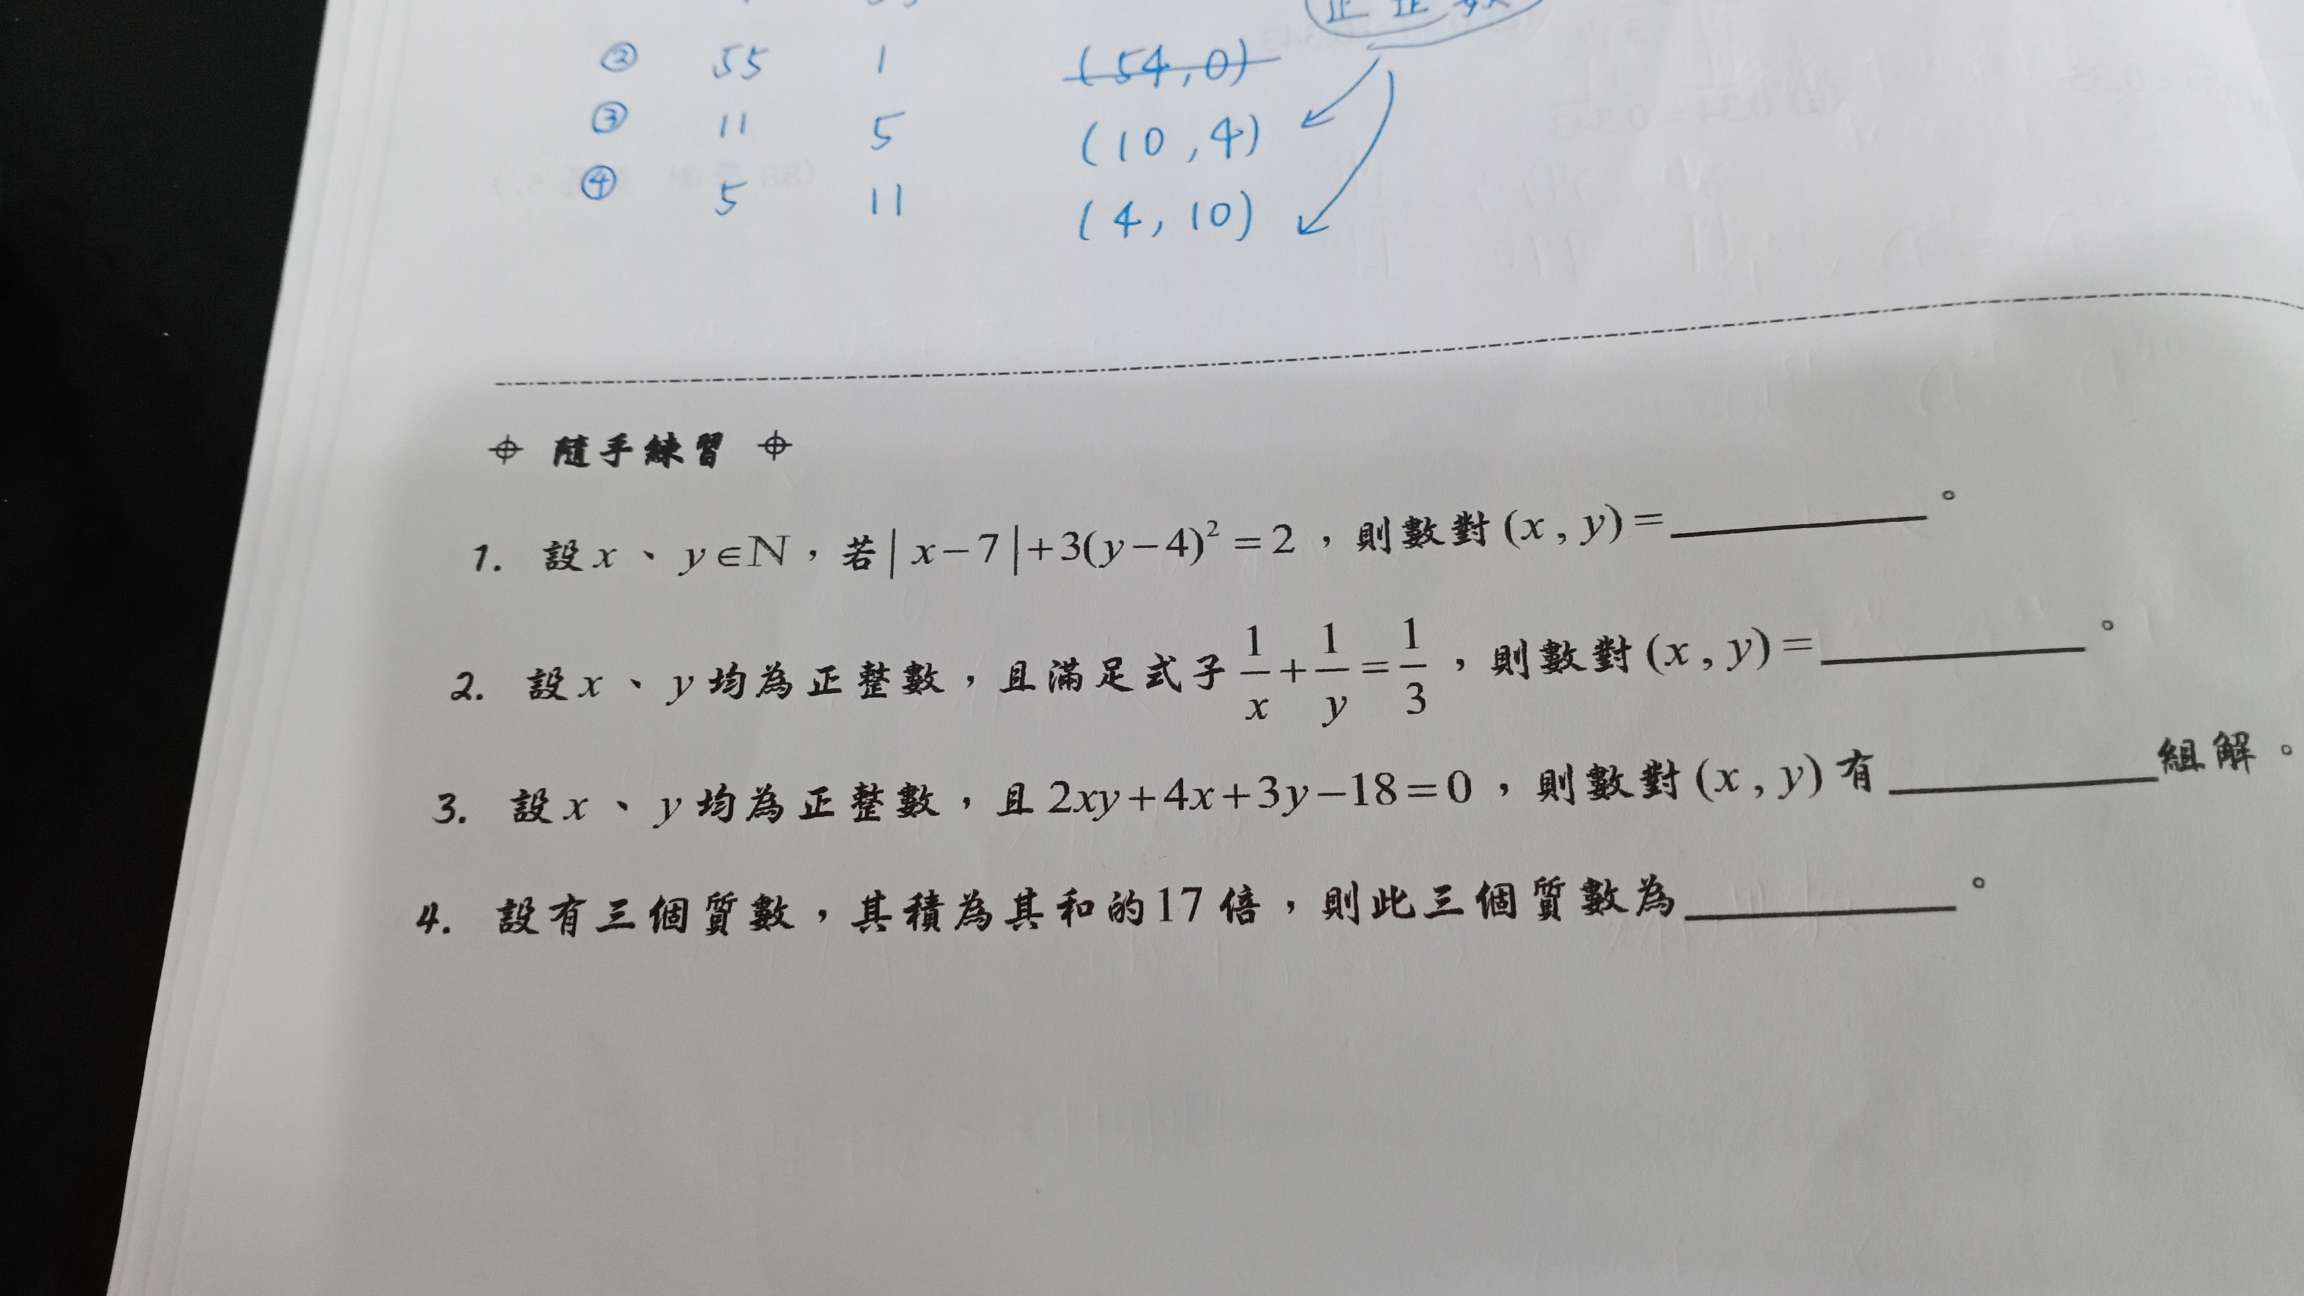 ② 55 1 (54,0)
③ 11 5 (10,4)
④ 5 11 (4,10)
隨手練習
1. 設 x、y∈N，若| x−7 |+3(y−4)²=2，則數對(x , y)=＿＿＿＿＿。
2. 設 x、y 均為正整數，且滿足式子 1/x + 1/y = 1/3，則數對(x , y)=＿＿＿＿＿。
3. 設 x、y 均為正整數，且 2xy+4x+3y−18=0，則數對(x , y)有＿＿＿＿＿組解。
4. 設有三個質數，其積為其和的17倍，則此三個質數為＿＿＿＿＿。